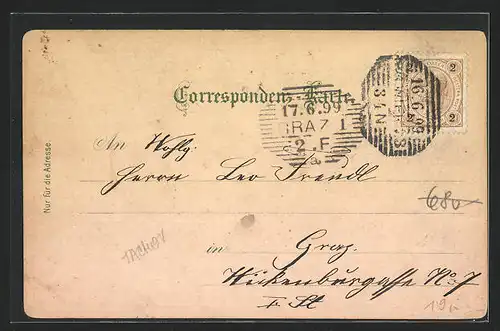 Correspondenz-Karte.
17.6.99
GRAZ 1
2.F
16.6.99
3.4.N
2
2
2
Nur für die Adresse.
An Wohlg.
Herrn Leo Trendl
in Graz
Wickenburggasse No 7
I. St
680